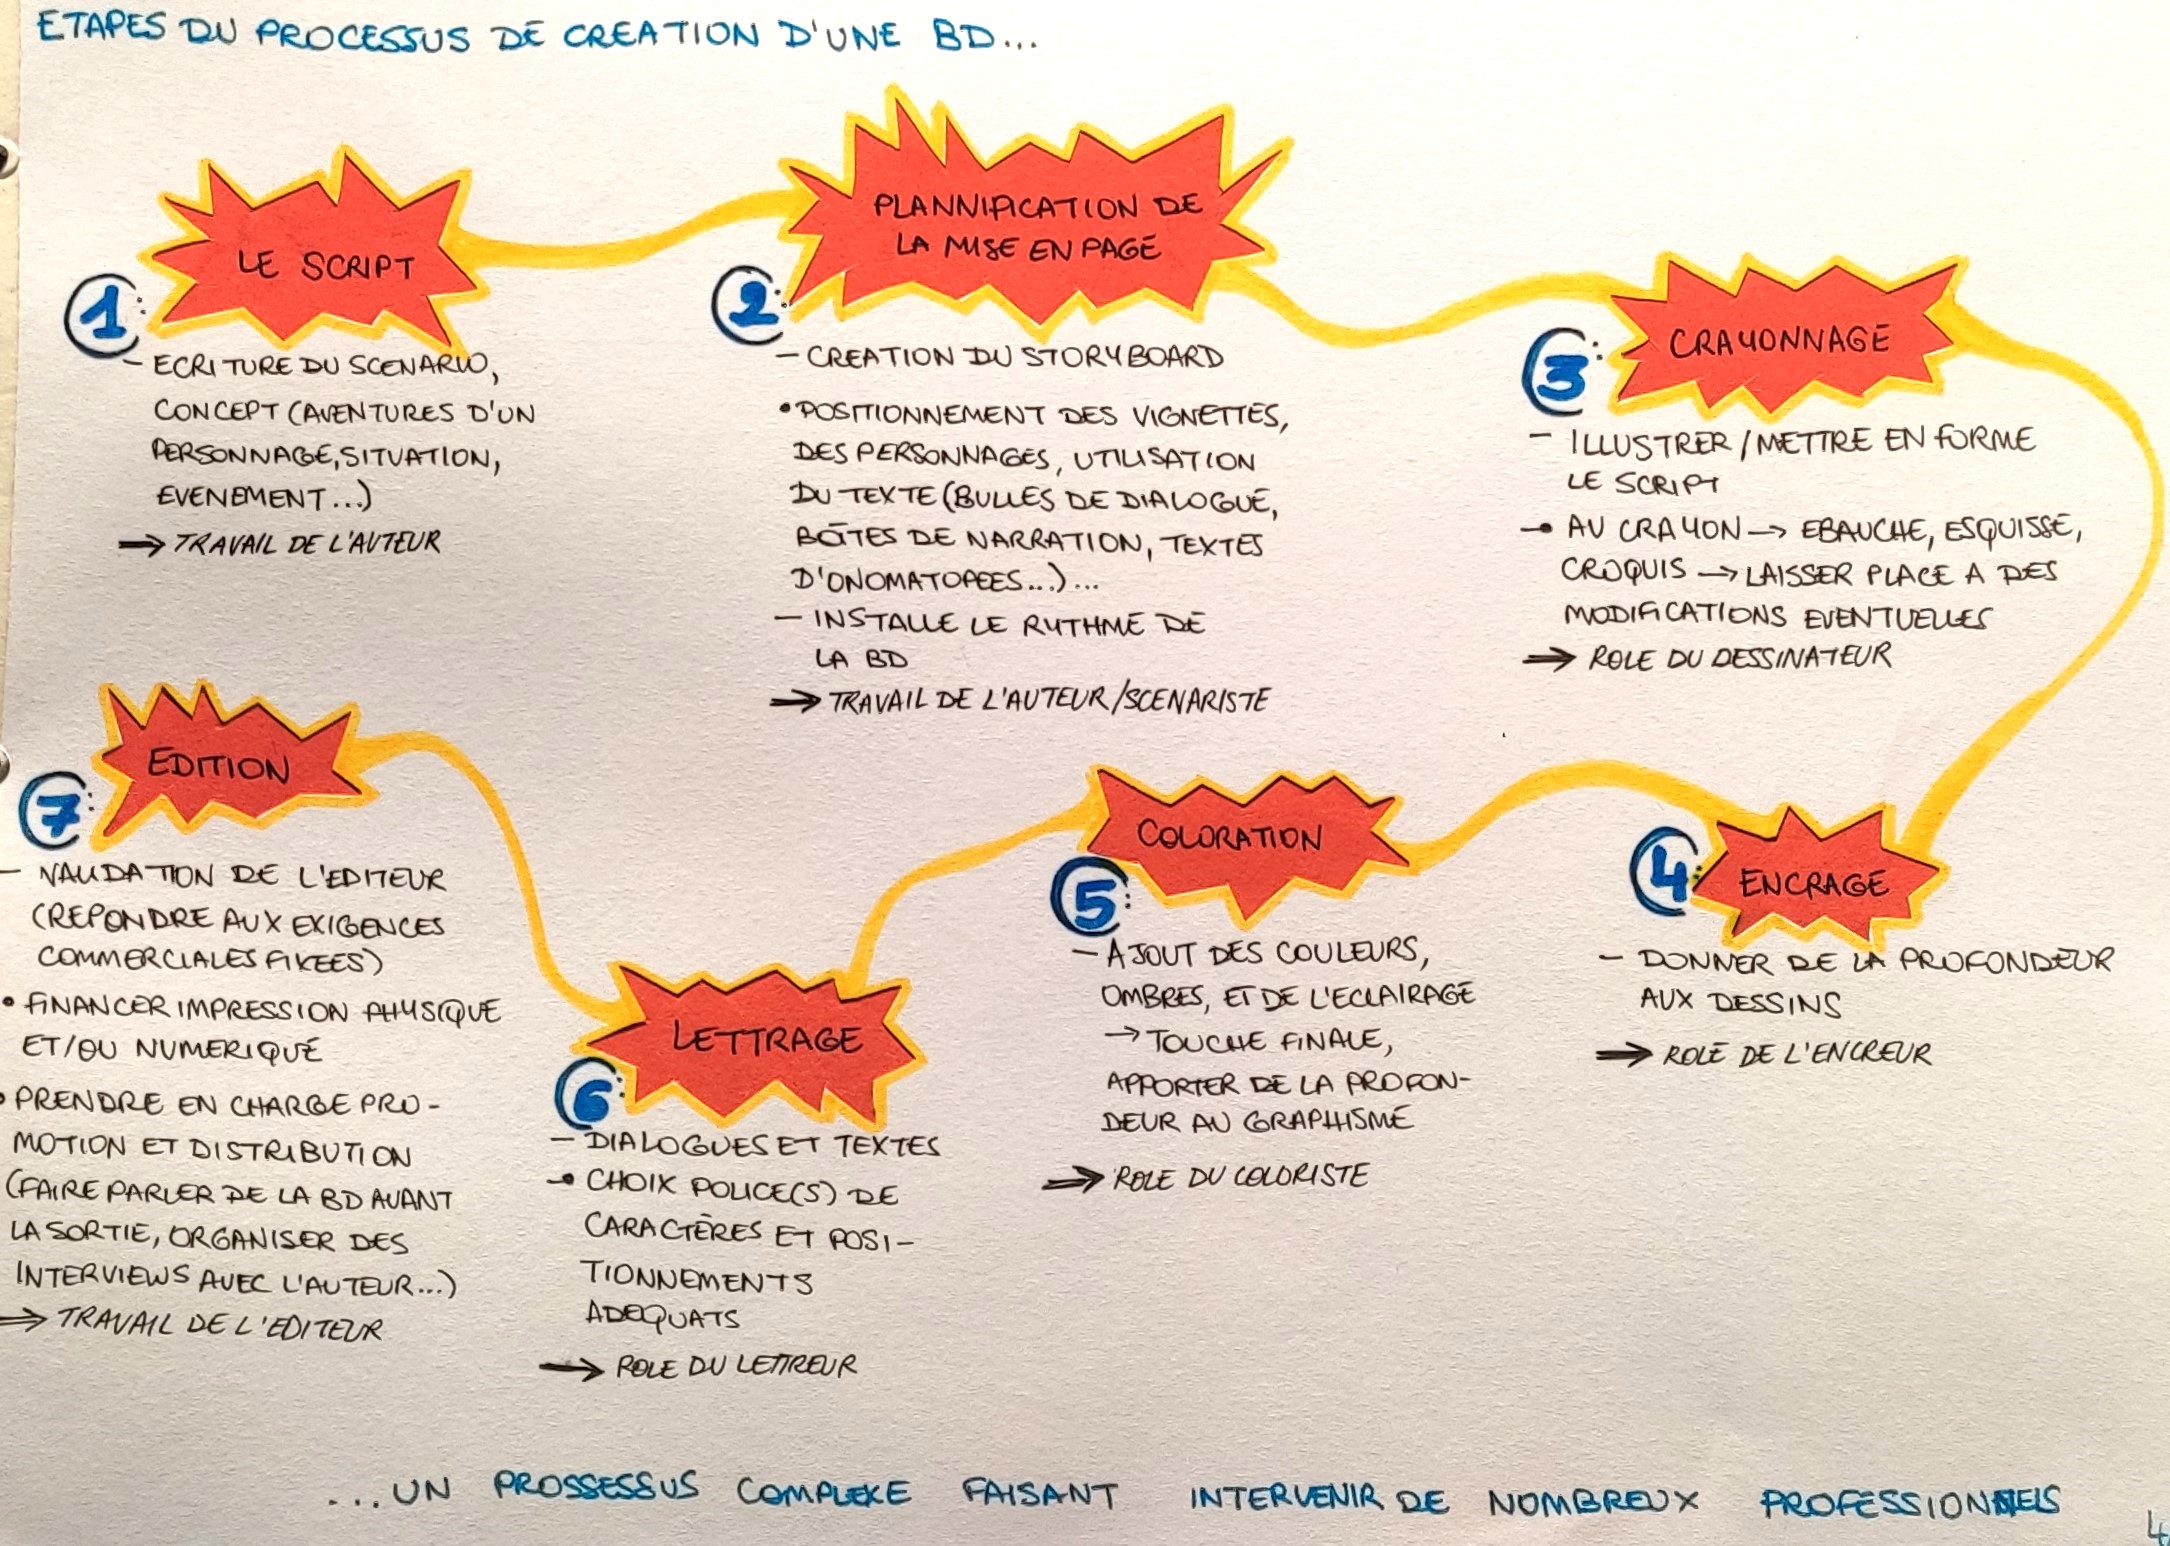 ETAPES DU PROCESSUS DE CREATION D'UNE BD...
1:
LE SCRIPT
– ECRITURE DU SCENARIO,
CONCEPT (AVENTURES D'UN
PERSONNAGE, SITUATION,
EVENEMENT...)
→ TRAVAIL DE L'AUTEUR
2:
PLANNIFICATION DE
LA MISE EN PAGE
– CREATION DU STORYBOARD
• POSITIONNEMENT DES VIGNETTES,
DES PERSONNAGES, UTILISATION
DU TEXTE (BULLES DE DIALOGUE,
BOÎTES DE NARRATION, TEXTES
D'ONOMATOPEES...)...
– INSTALLE LE RYTHME DE
LA BD
→ TRAVAIL DE L'AUTEUR/SCENARISTE
3:
CRAYONNAGE
– ILLUSTRER / METTRE EN FORME
LE SCRIPT
• AU CRAYON → EBAUCHE, ESQUISSE,
CROQUIS → LAISSER PLACE A DES
MODIFICATIONS EVENTUELLES
→ ROLE DU DESSINATEUR
4:
ENCRAGE
– DONNER DE LA PROFONDEUR
AUX DESSINS
→ ROLE DE L'ENCREUR
5:
COLORATION
– AJOUT DES COULEURS,
OMBRES, ET DE L'ECLAIRAGE
→ TOUCHE FINALE,
APPORTER DE LA PROFON-
DEUR AU GRAPHISME
→ ROLE DU COLORISTE
6:
LETTRAGE
– DIALOGUES ET TEXTES
• CHOIX POLICE(S) DE
CARACTÈRES ET POSI-
TIONNEMENTS
ADEQUATS
→ ROLE DU LETTREUR
7:
EDITION
– VALIDATION DE L'EDITEUR
(REPONDRE AUX EXIGENCES
COMMERCIALES FIXEES)
• FINANCER IMPRESSION PHYSIQUE
ET/OU NUMERIQUE
• PRENDRE EN CHARGE PRO-
MOTION ET DISTRIBUTION
(FAIRE PARLER DE LA BD AVANT
LA SORTIE, ORGANISER DES
INTERVIEWS AVEC L'AUTEUR...)
→ TRAVAIL DE L'EDITEUR
...UN PROSSESSUS COMPLEXE FAISANT INTERVENIR DE NOMBREUX PROFESSIONNELS
4